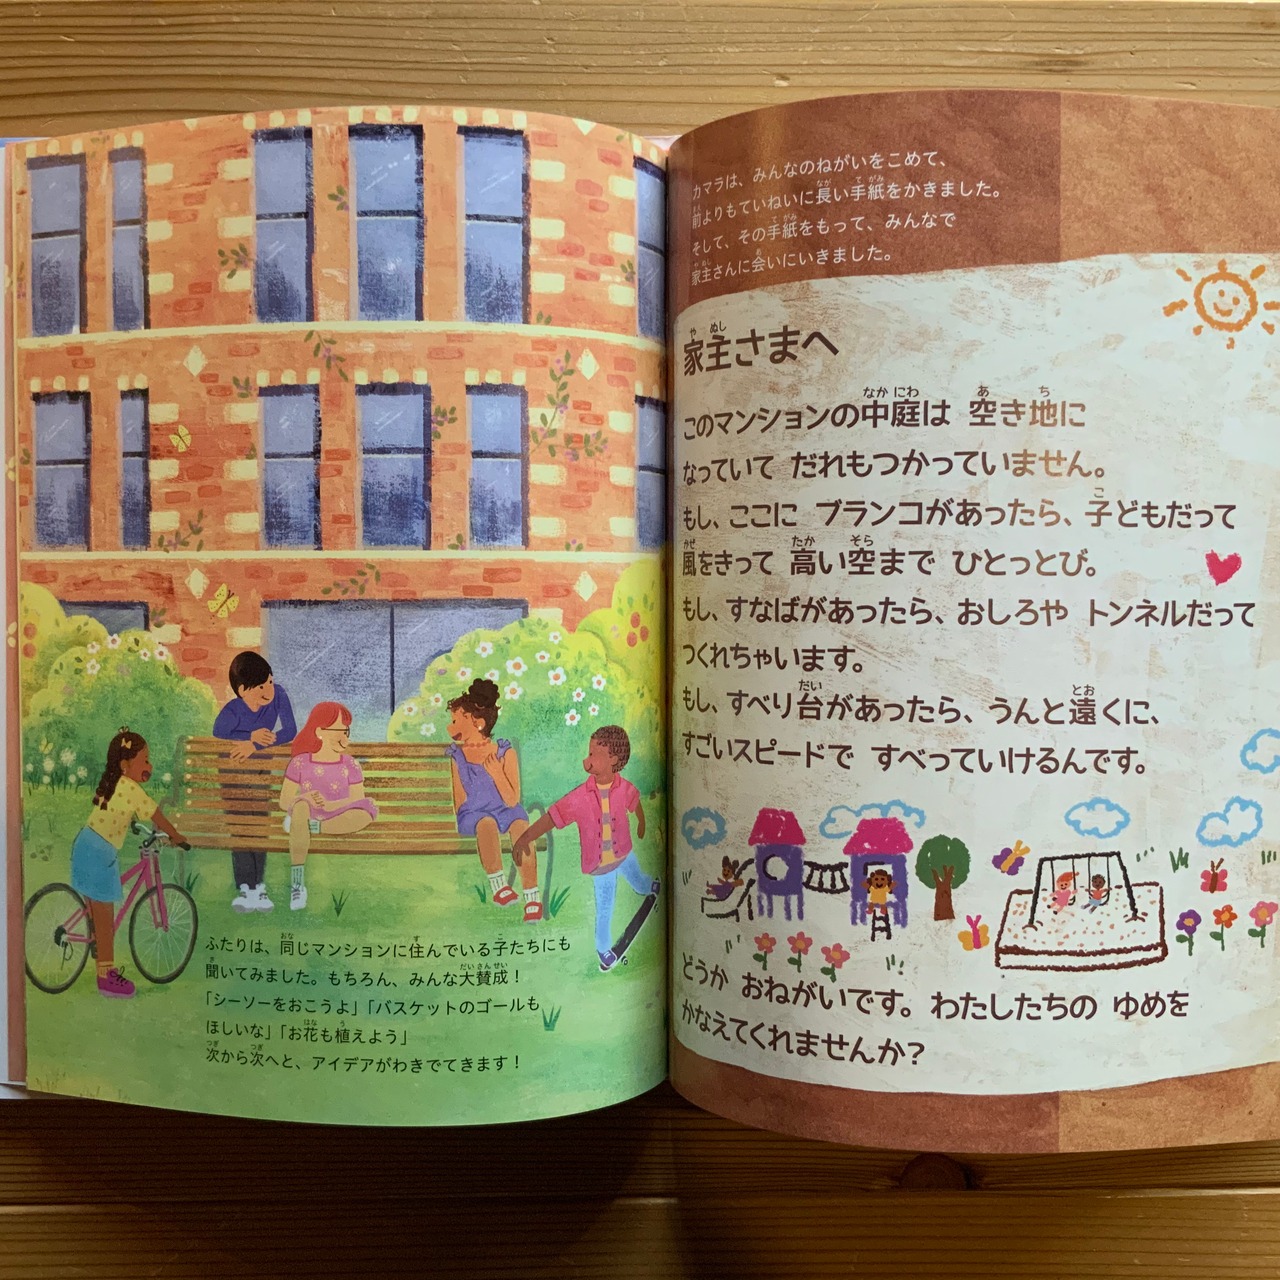 ふたりは、同じマンションに住んでいる子たちにも
聞いてみました。もちろん、みんな大賛成！
「シーソーをおこうよ」「バスケットのゴールも
ほしいな」「お花も植えよう」
次から次へと、アイデアがわきでてきます！
カマラは、みんなのねがいをこめて、
前よりもていねいに長い手紙をかきました。
そして、その手紙をもって、みんなで
家主さんに会いにいきました。
家主さまへ
このマンションの中庭は 空き地に
なっていて だれもつかっていません。
もし、ここに ブランコがあったら、子どもだって
風をきって 高い空まで ひとっとび。
もし、すなばがあったら、おしろや トンネルだって
つくれちゃいます。
もし、すべり台があったら、うんと遠くに、
すごいスピードで すべっていけるんです。
どうか おねがいです。わたしたちの ゆめを
かなえてくれませんか？